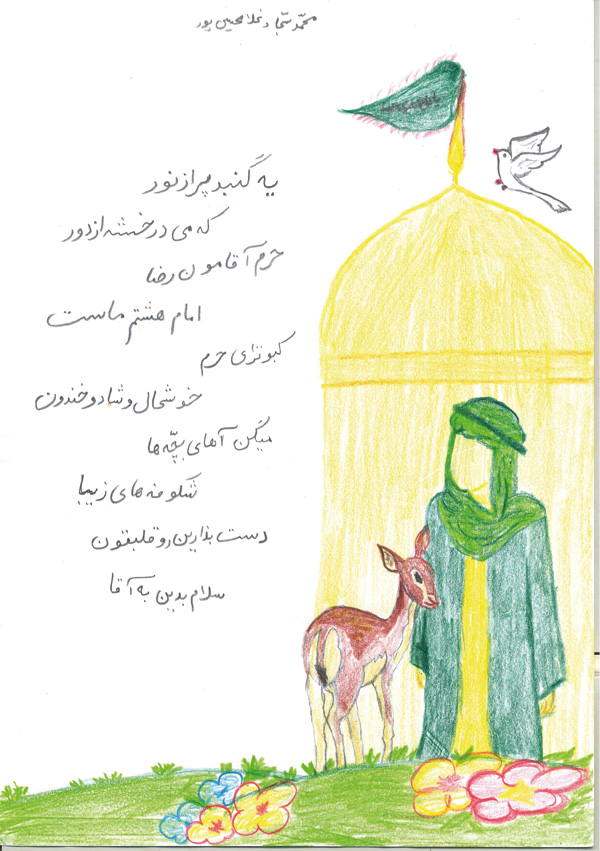 محمد سجاد غلامحسین پور
یه گنبد پر از نور
که می درخشه از دور
حرم آقامون رضا
امام هشتم ماست
کبوترای حرم
خوشحال و شاد و خندون
میگن آهای بچّه ها
شکوفه های زیبا
دست بذارین رو قلبتون
سلام بدین به آقا